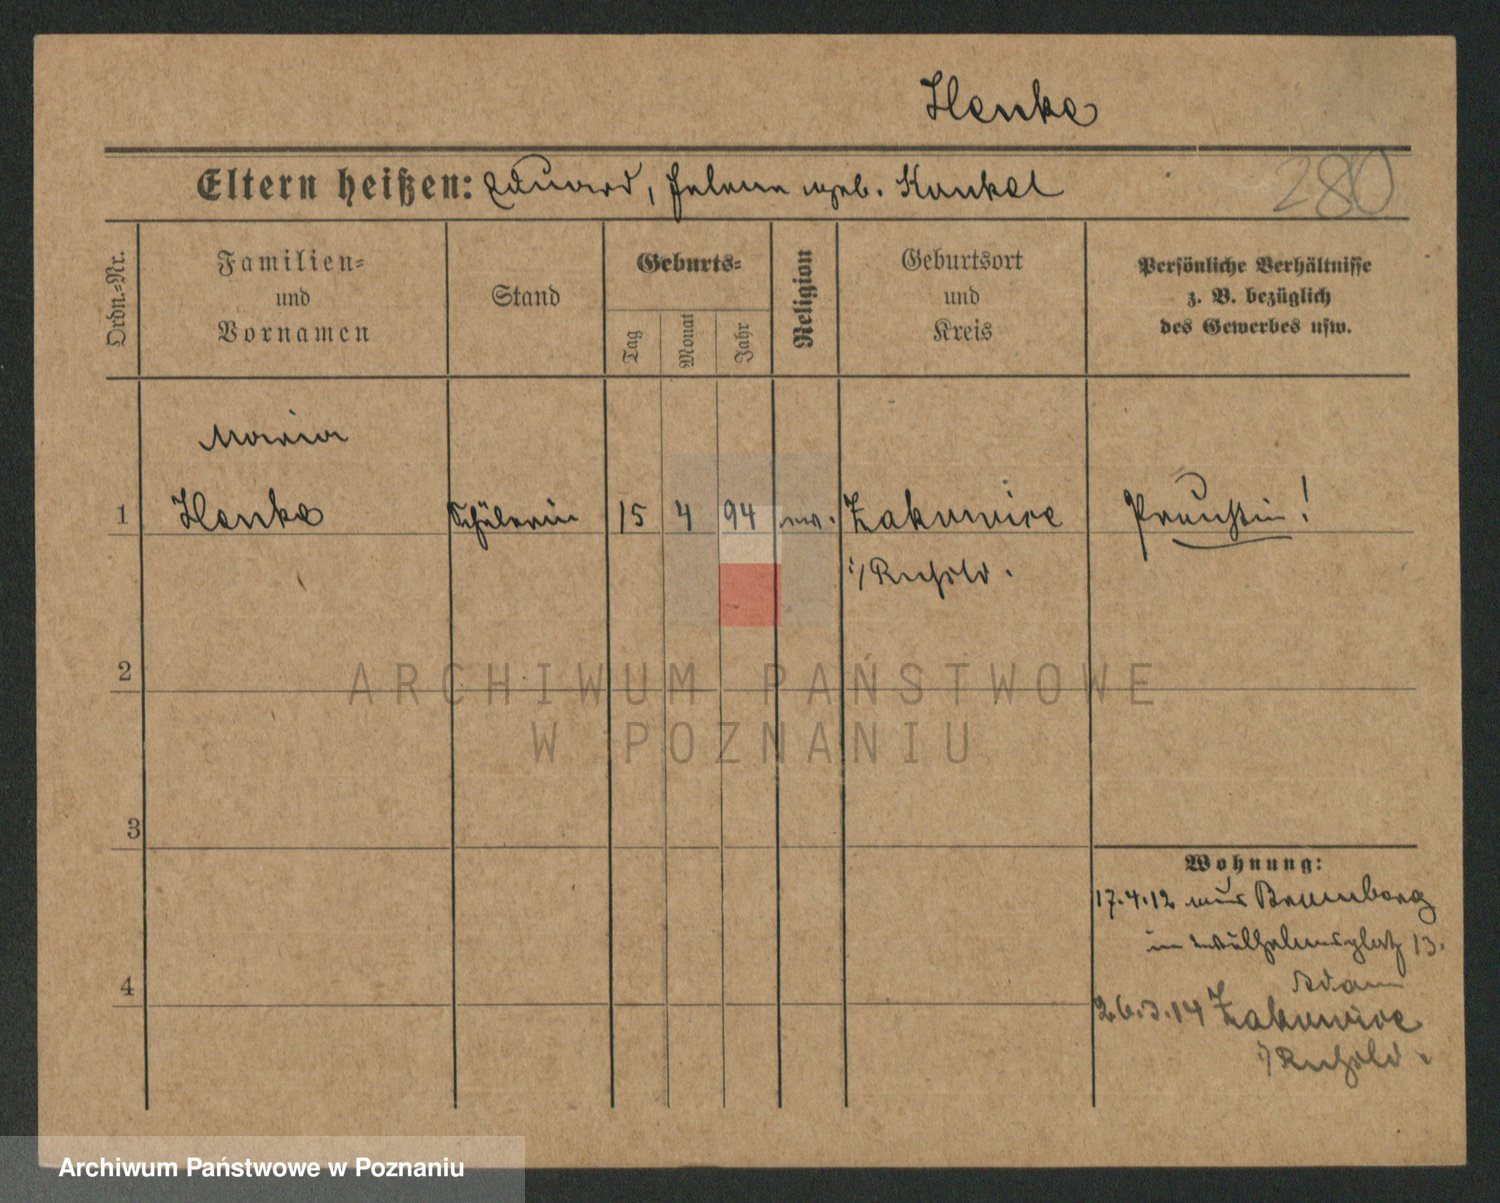 Henke
Eltern heißen: Eduard, Helene geb. Kunkel
280
Ordn.-Nr.
Familien-
und
Vornamen
Stand
Geburts-
Tag
Monat
Jahr
Religion
Geburtsort
und
Kreis
Persönliche Verhältnisse
z. B. bezüglich
des Gewerbes usw.
Maria
1 Henke Schülerin 15 4 94 ev. Zakowice Preußin!
2
3
4
Wohnung:
17.4.12 aus Bromberg
in Wilhelmsplatz 13.
Adam
26.3.14 Zakowice
ARCHIWUM PAŃSTWOWE
W POZNANIU
Archiwum Państwowe w Poznaniu